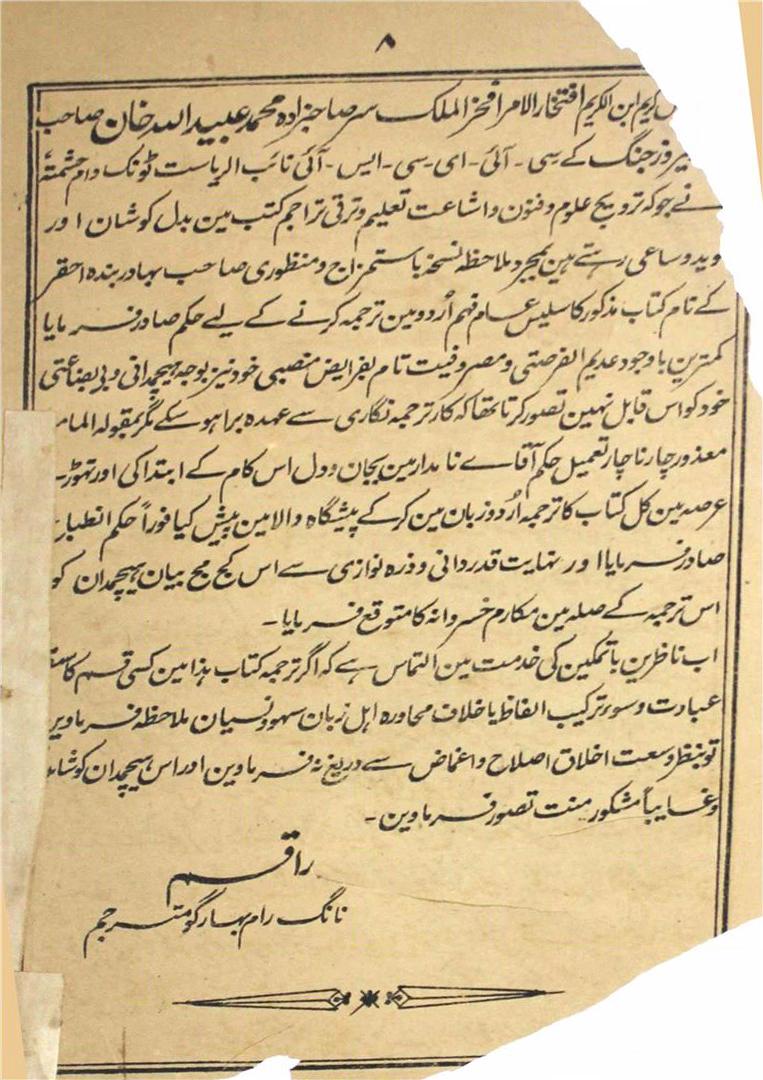 ۸
کریم ابن الکریم افتخار الامرا فخر الملک سر صاحبزادہ محمد عبید اللہ خان صاحب
فیروز جنگ کے سی - آئی - ای - سی - ایس - آئی نائب الریاست ٹونک دام حشمتہٗ
نے جو کہ ترویج علوم و فنون و اشاعت تعلیم و ترقی تراجم کتب مین بدل کوشان اور
و ساعی رہتے ہین بمجرد ملاحظہ نسخہ باستمزاج و منظوری صاحب بہادر بندہ احقر
کے نام کتاب مذکور کا سلیس عام فہم اُردو مین ترجمہ کرنے کے لیے حکم صادر فرمایا
کمترین باوجود عدیم الفرصتی و مصروفیت تام بفرایض منصبی خود نیز بوجہ ہیچمدانی و بی بضاعتی
خود کو اس قابل نہین تصور کرتا تھا کہ کار ترجمہ نگاری سے عہدہ برا ہو سکے مگر بمقولہ
معذور چار ناچار تعمیل حکم آقاے نامدار مین بجان و دل اس کام کے ابتدا کی اور تہوڑ
عرصہ مین کل کتاب کا ترجمہ اُردو زبان مین کر کے پیشگاہ والا مین پیش کیا فوراً حکم انطباع
صادر فرمایا اور نہایت قدردانی و ذرہ نوازی سے اس کج مج بیان ہیچمدان کو
اس ترجمہ کے صلہ مین مکارم خسروانہ کا متوقع فرمایا -
اب ناظرین باتمکین کی خدمت مین التماس ہے کہ اگر ترجمہ کتاب ہذا مین کسی قسم کا
عبادت و سوء ترکیب الفاظ یا خلاف محاورہ اہل زبان سہو و نسیان ملاحظہ فرماوین
تو بنظر وسعت اخلاق اصلاح و اغماض سے دریغ نہ فرماوین اور اس ہیچمدان کو
و غایباً مشکور منت تصور فرماوین -
راقم
نانگ رام بہارگو مترجم